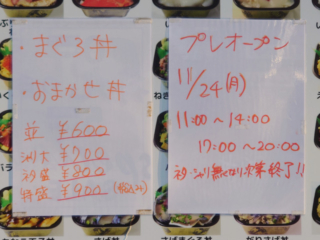 ・まぐろ丼
・おまかせ丼
並 ¥600
シャリ大 ¥700
ネタ盛 ¥800
特盛 ¥900 (税込み)
プレオープン
11/24(月)
11:00〜14:00
17:00〜20:00
ネタ・シャリ無くなり次第終了!!